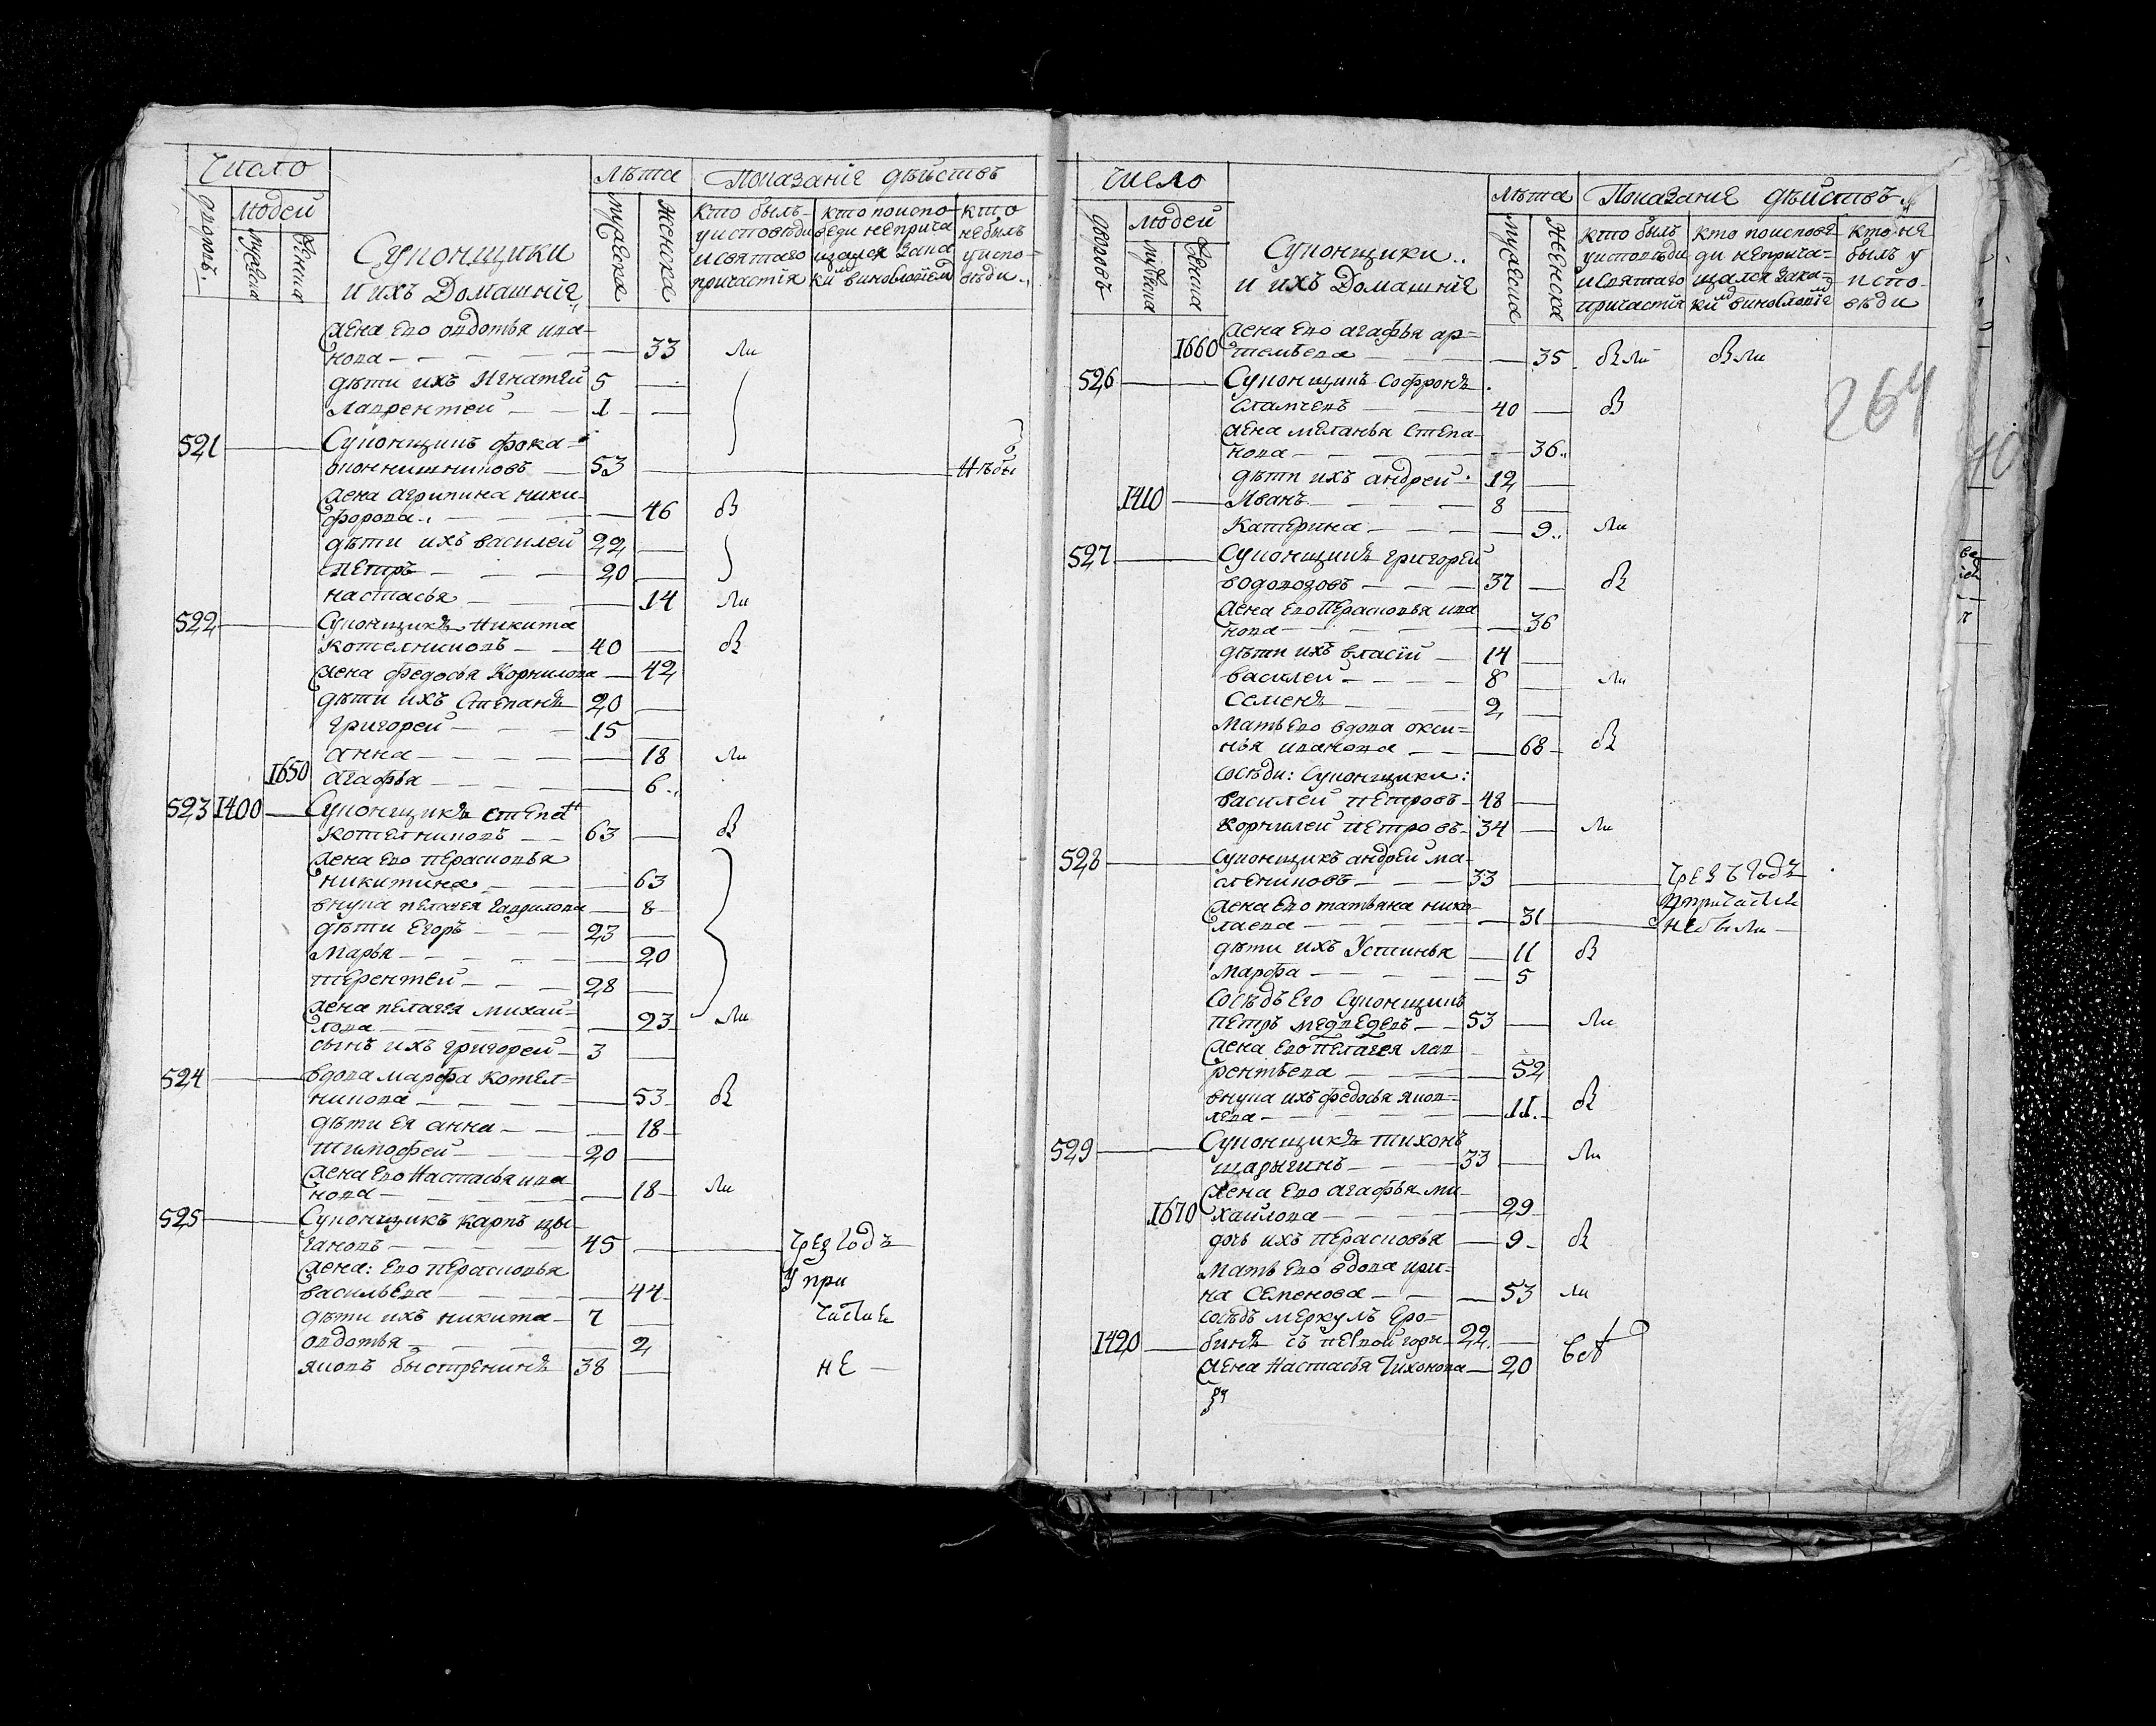 Число
Лѣта Показанiе дѣйствъ
дворовъ. людей
мужеска женска
Суконщики
и ихъ Домашнiе
мужеска женска
кто былъ
у исповѣди
и святаго
причастiя
кто по испо-
веди не прича
щался
кто
не былъ
у испо-
вѣди
жена Ево овдотья ива-
нова — 33 ли
дѣти ихъ Игнатей 5
Лаврентей — 1
521 Суконщикъ фока
53
жена агрипина ники-
форова — 46 В
дѣти ихъ василей 22
Петръ — 20
настасья — 14 ли
522 Суконщикъ Никита
котелниковъ — 40 В
жена федосья Корнилова — 42
дѣти ихъ Степанъ 20
григорей — 15
анна — 18 ли
1650 агафья — 6
523 1400 Суконщикъ степан
котелниковъ — 63 В
жена Ево перасковья
никитина — 63
внука пелагея гаврилова — 8
дѣти Егоръ — 23
Марья — 20
терентей — 28
жена пелагея михай-
лова — 23 ли
сынъ ихъ григорей — 3
524 вдова марфа котел-
никова — 53 В
дѣти Ея анна — 18
тимофей — 20
жена Ево Настасья ива
нова — 18 ли
525 Суконщикъ карпъ цы-
гановъ — 45 чрез годъ
жена: Ево перасковья
васильева — 44 у при
дѣти ихъ никита — 7 частие
овдотья — 2
яковъ быстренинъ 38 не
Число
Лѣта Показанiе дѣйствъ
дворовъ людей
мужеска женска
Суконщики
и ихъ Домашнiе
мужеска женска
кто былъ
у исповѣди
и святаго
причастiя
кто по испове-
ди не прича-
щался
кто не
былъ у
испо-
вѣди
1660 жена Ево агафья ар-
темьева — 35 были были
264
526 Суконщикъ Софронъ
40 В
жена меланья Степа-
нова — 36
дѣти ихъ андрей 12
1410 Иванъ — 8
Катерина — 9 ли
527 Суконщикъ григорей
водовозовъ — 37 В
жена Ево Перасковья ива
нова — 36
дѣти ихъ власiй — 14
василей — 8 ли
Семенъ — 2
Мать Ево вдова окси-
нья иванова — 68 В
Сосѣди: Суконщики:
василей петровъ 48
корнилей петровъ 34 ли
528 Суконщикъ андрей ма-
слениковъ — 33 чрезъ годъ
жена Ево татьяна нико- у причастие
лаева — 31 не были
дѣти ихъ Устинья — 11 В
марфа — 5
Сосѣдъ Его Суконщикъ
петръ медведевъ — 53 ли
жена Ево пелагея лав
рентьева — 52
внука ихъ федосья яков-
лева — 11 В
529 Суконщикъ тихонъ
шарыгинъ — 33 ли
1670 жена Ево агафья ми-
хаилова — 29
дочь ихъ перасковья — 9 В
Мать Ево вдова ири-
на Семенова — 53 ли
сосѣдъ меркулъ Еро-
1420 22
жена Настасья Тихонова — 20